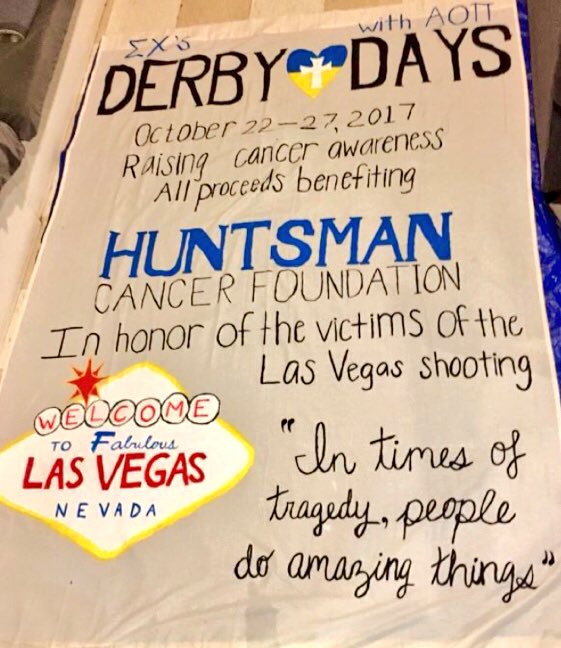 ΣX's
with AOΠ
DERBY DAYS
October 22-27, 2017
Raising cancer awareness
All proceeds benefiting
HUNTSMAN
CANCER FOUNDATION
In honor of the victims of the
Las Vegas shooting
WELCOME
TO Fabulous
LAS VEGAS
NEVADA
"In times of
tragedy, people
do amazing things"